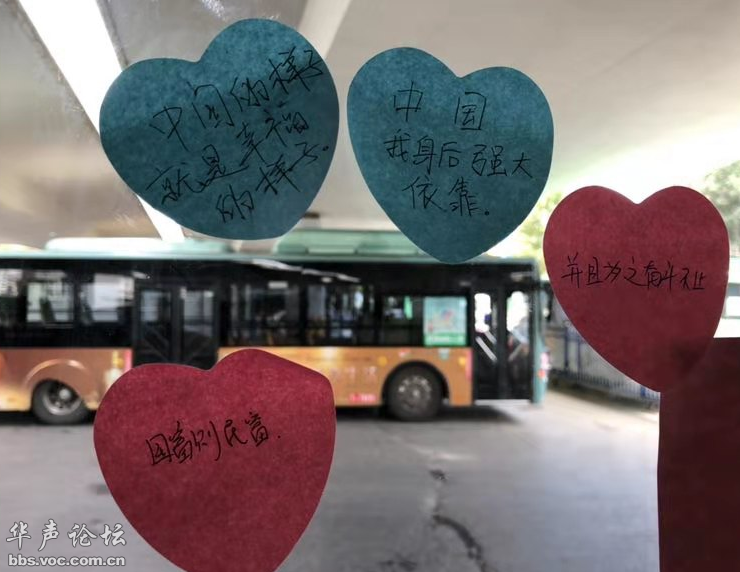 中国的样子
就是幸福
的样子.
中 国
我身后强大
依靠.
并且为之奋斗不止
国富则民富.
华声论坛
bbs.voc.com.cn